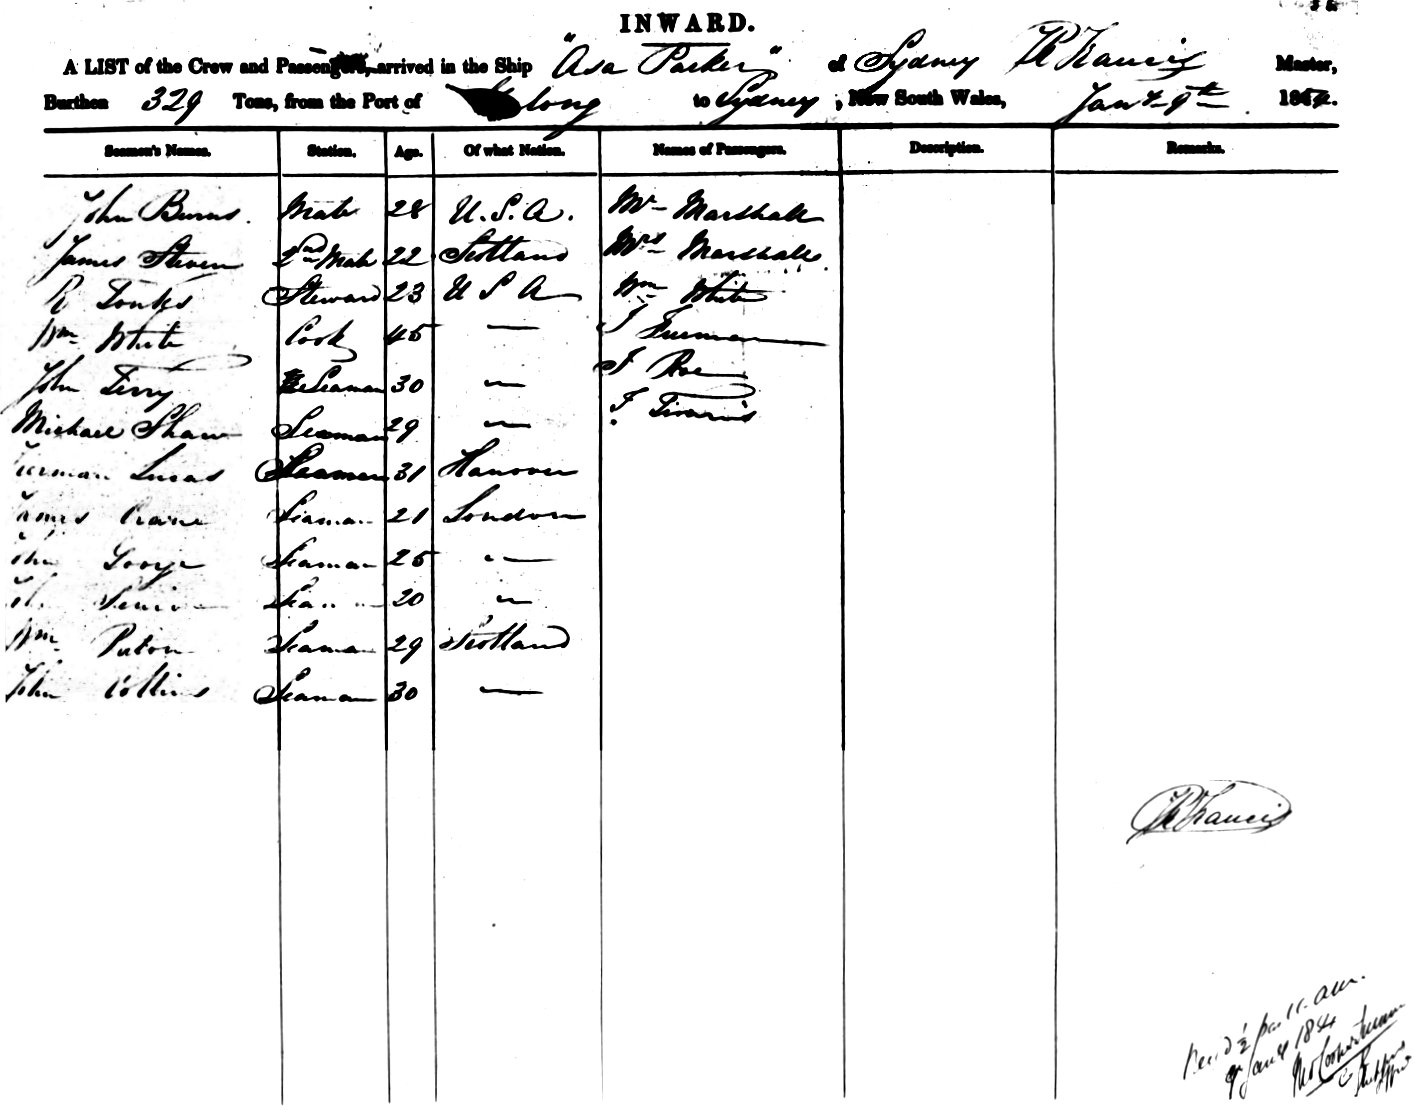 INWARD.
A LIST of the Crew and Passengers, arrived in the Ship "Asa Parker" of Sydney R Francis Master,
Burthen 329 Tons, from the Port of Geelong to Sydney, New South Wales, Jany 9th 1854.
Seamen's Names. Station. Age. Of what Nation. Names of Passengers. Description. Remarks.
John Burns. Mate 28 U.S.A. Mr Marshall
James Steven 2nd Mate 22 Scotland Mrs Marshall
R Tonks Steward 23 U S A Wm White
Wm White Cook 45 — J Furman
John Terry Seaman 30 — J Roe
Michael Shaw Seaman 29 — J
Lucas Seaman 31 Hanover
James Crane Seaman 21 London
John George Seaman 25 —
Seaman 20 —
Wm Paton Seaman 29 Scotland
John Collins Seaman 30 —
R Francis
Recd ½ pa 11. AM.
9 Jany 1854